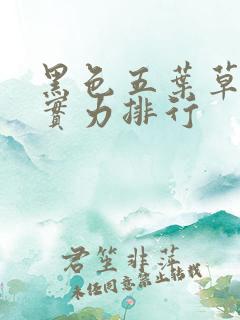 黑色五葉草
實力排行
君笙非萍
未任同意禁止转载